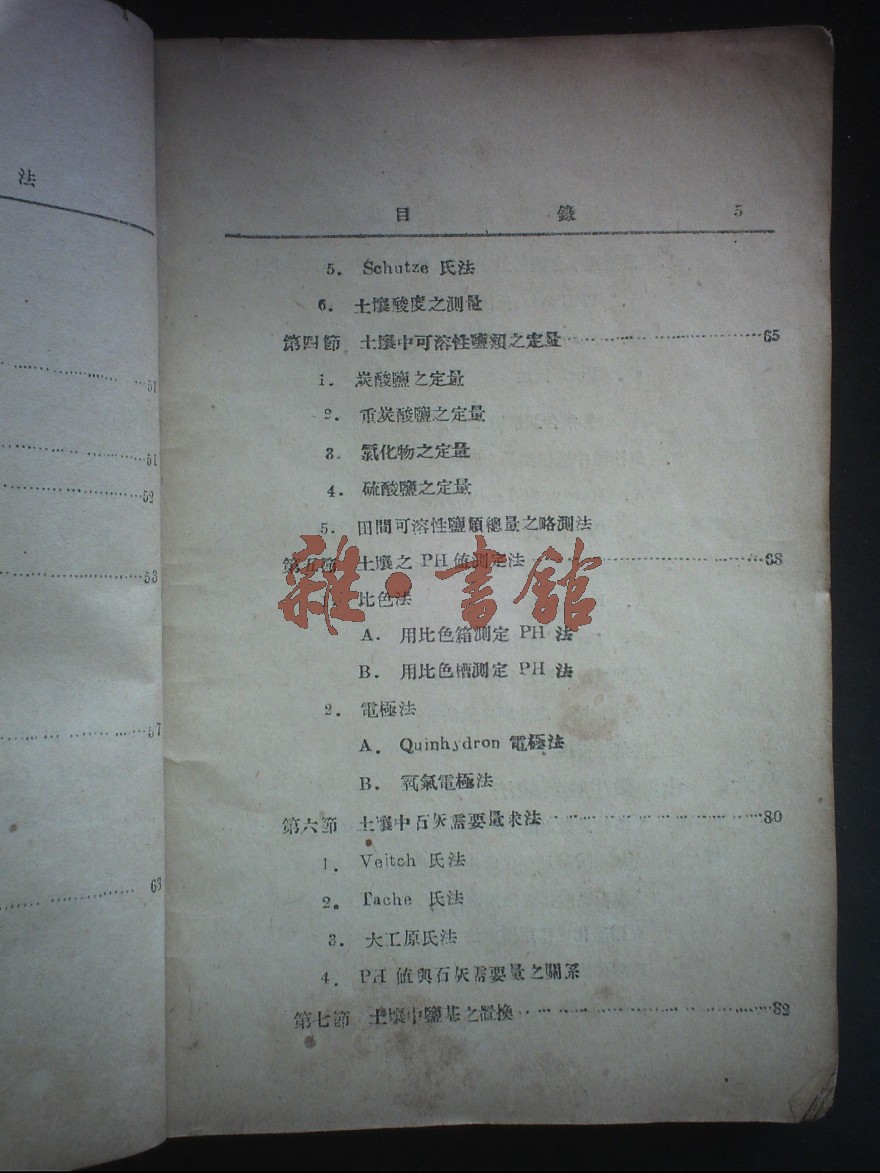 法
51
51
52
53
57
63
目 錄 5
5. Schutze 氏法
6. 土壤酸度之測量
第四節 土壤中可溶性鹽類之定量 65
1. 炭酸鹽之定量
2. 重炭酸鹽之定量
3. 氯化物之定量
4. 硫酸鹽之定量
5. 田間可溶性鹽類總量之略測法
第五節 土壤之 PH 値測定法 68
比色法
A. 用比色箱測定 PH 法
B. 用比色槽測定 PH 法
2. 電極法
A. Quinhydron 電極法
B. 氧氣電極法
第六節 土壤中石灰需要量求法 80
1. Veitch 氏法
2. Tache 氏法
3. 大工原氏法
4. PH 値與石灰需要量之關系
第七節 土壤中鹽基之置換 82
雜·書館